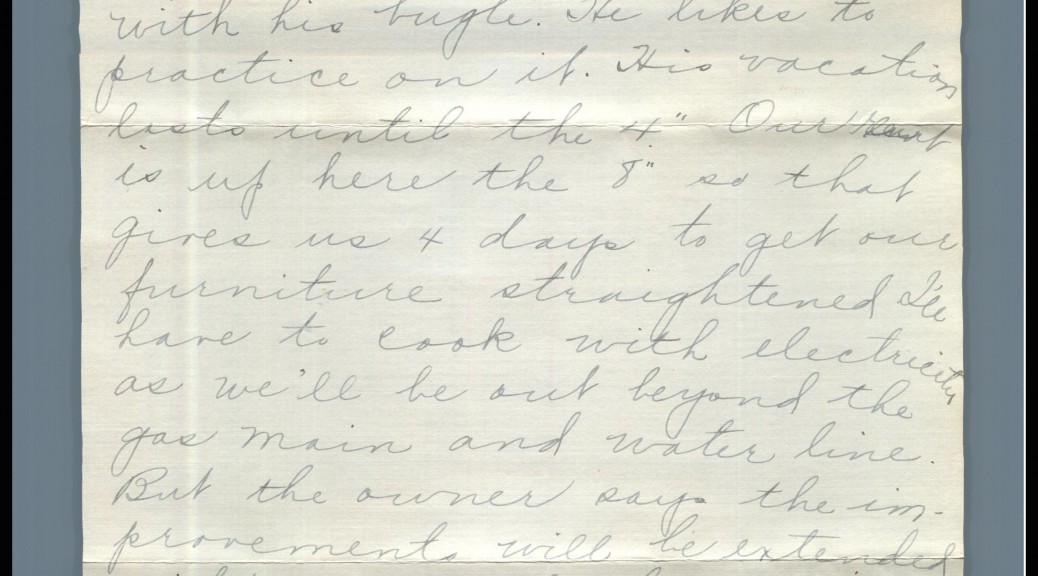 with his bugle. He likes to
practice on it. His vacation
lasts until the 4". Our rent
is up here the 8" so that
gives us 4 days to get our
furniture straightened I'll
have to cook with electricity
as we'll be out beyond the
gas main and water line.
But the owner says the im-
provements will be extended